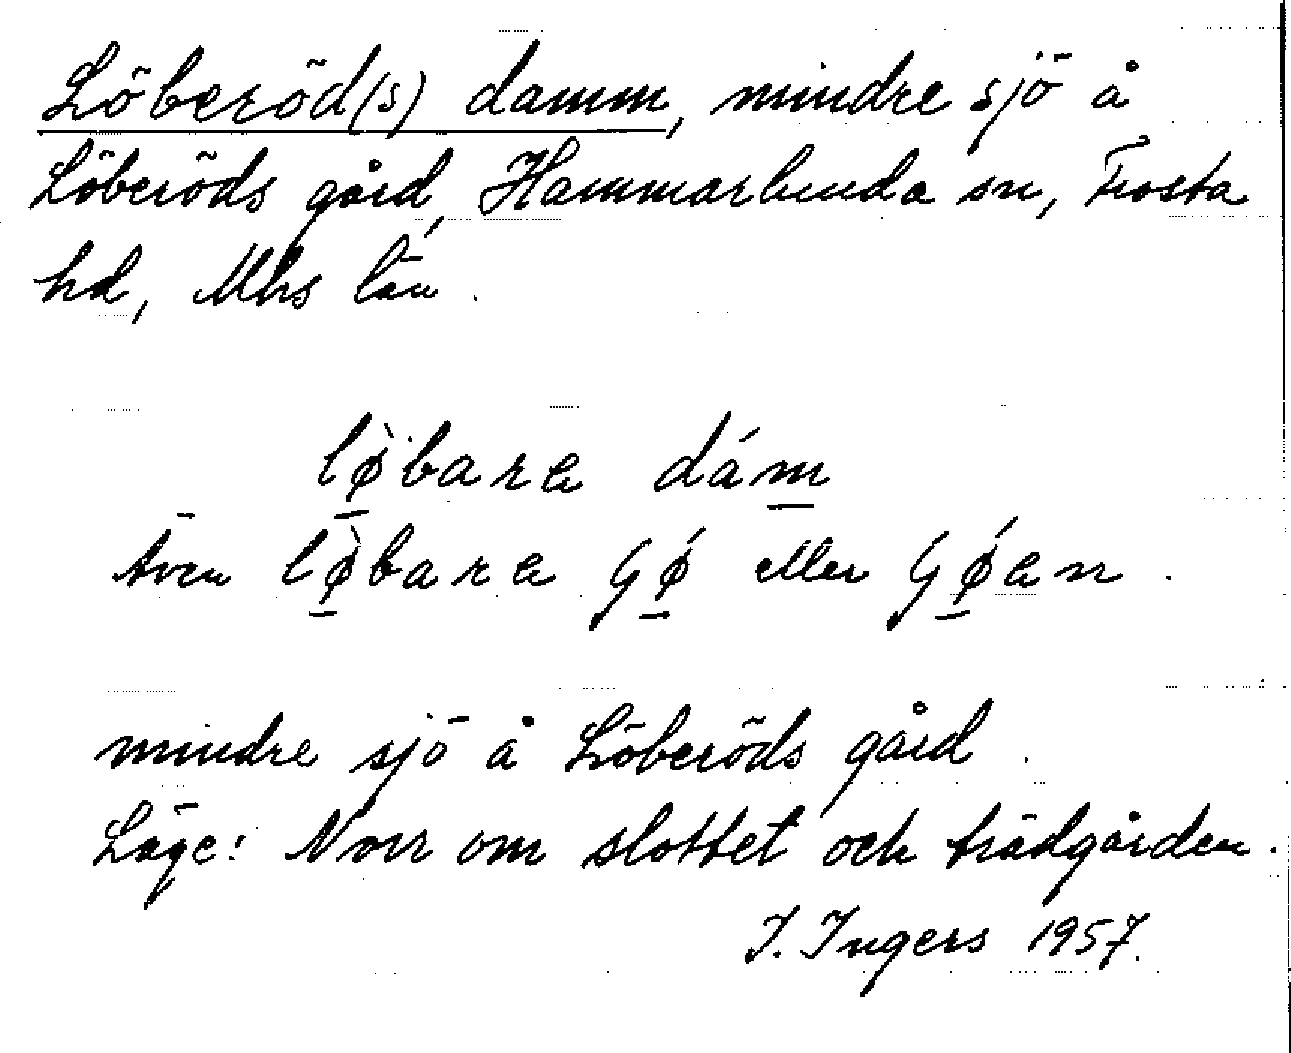 Löberöd(s) damm, mindre sjö å
Löberöds gård, Hammarlunda sn, Frosta
hd, Mhs län.
lø̀bara dám
Även lø̀bara ɕǿ eller ɕǿan.
mindre sjö å Löberöds gård.
Läge: Norr om slottet och trädgården.
I. Ingers 1957.